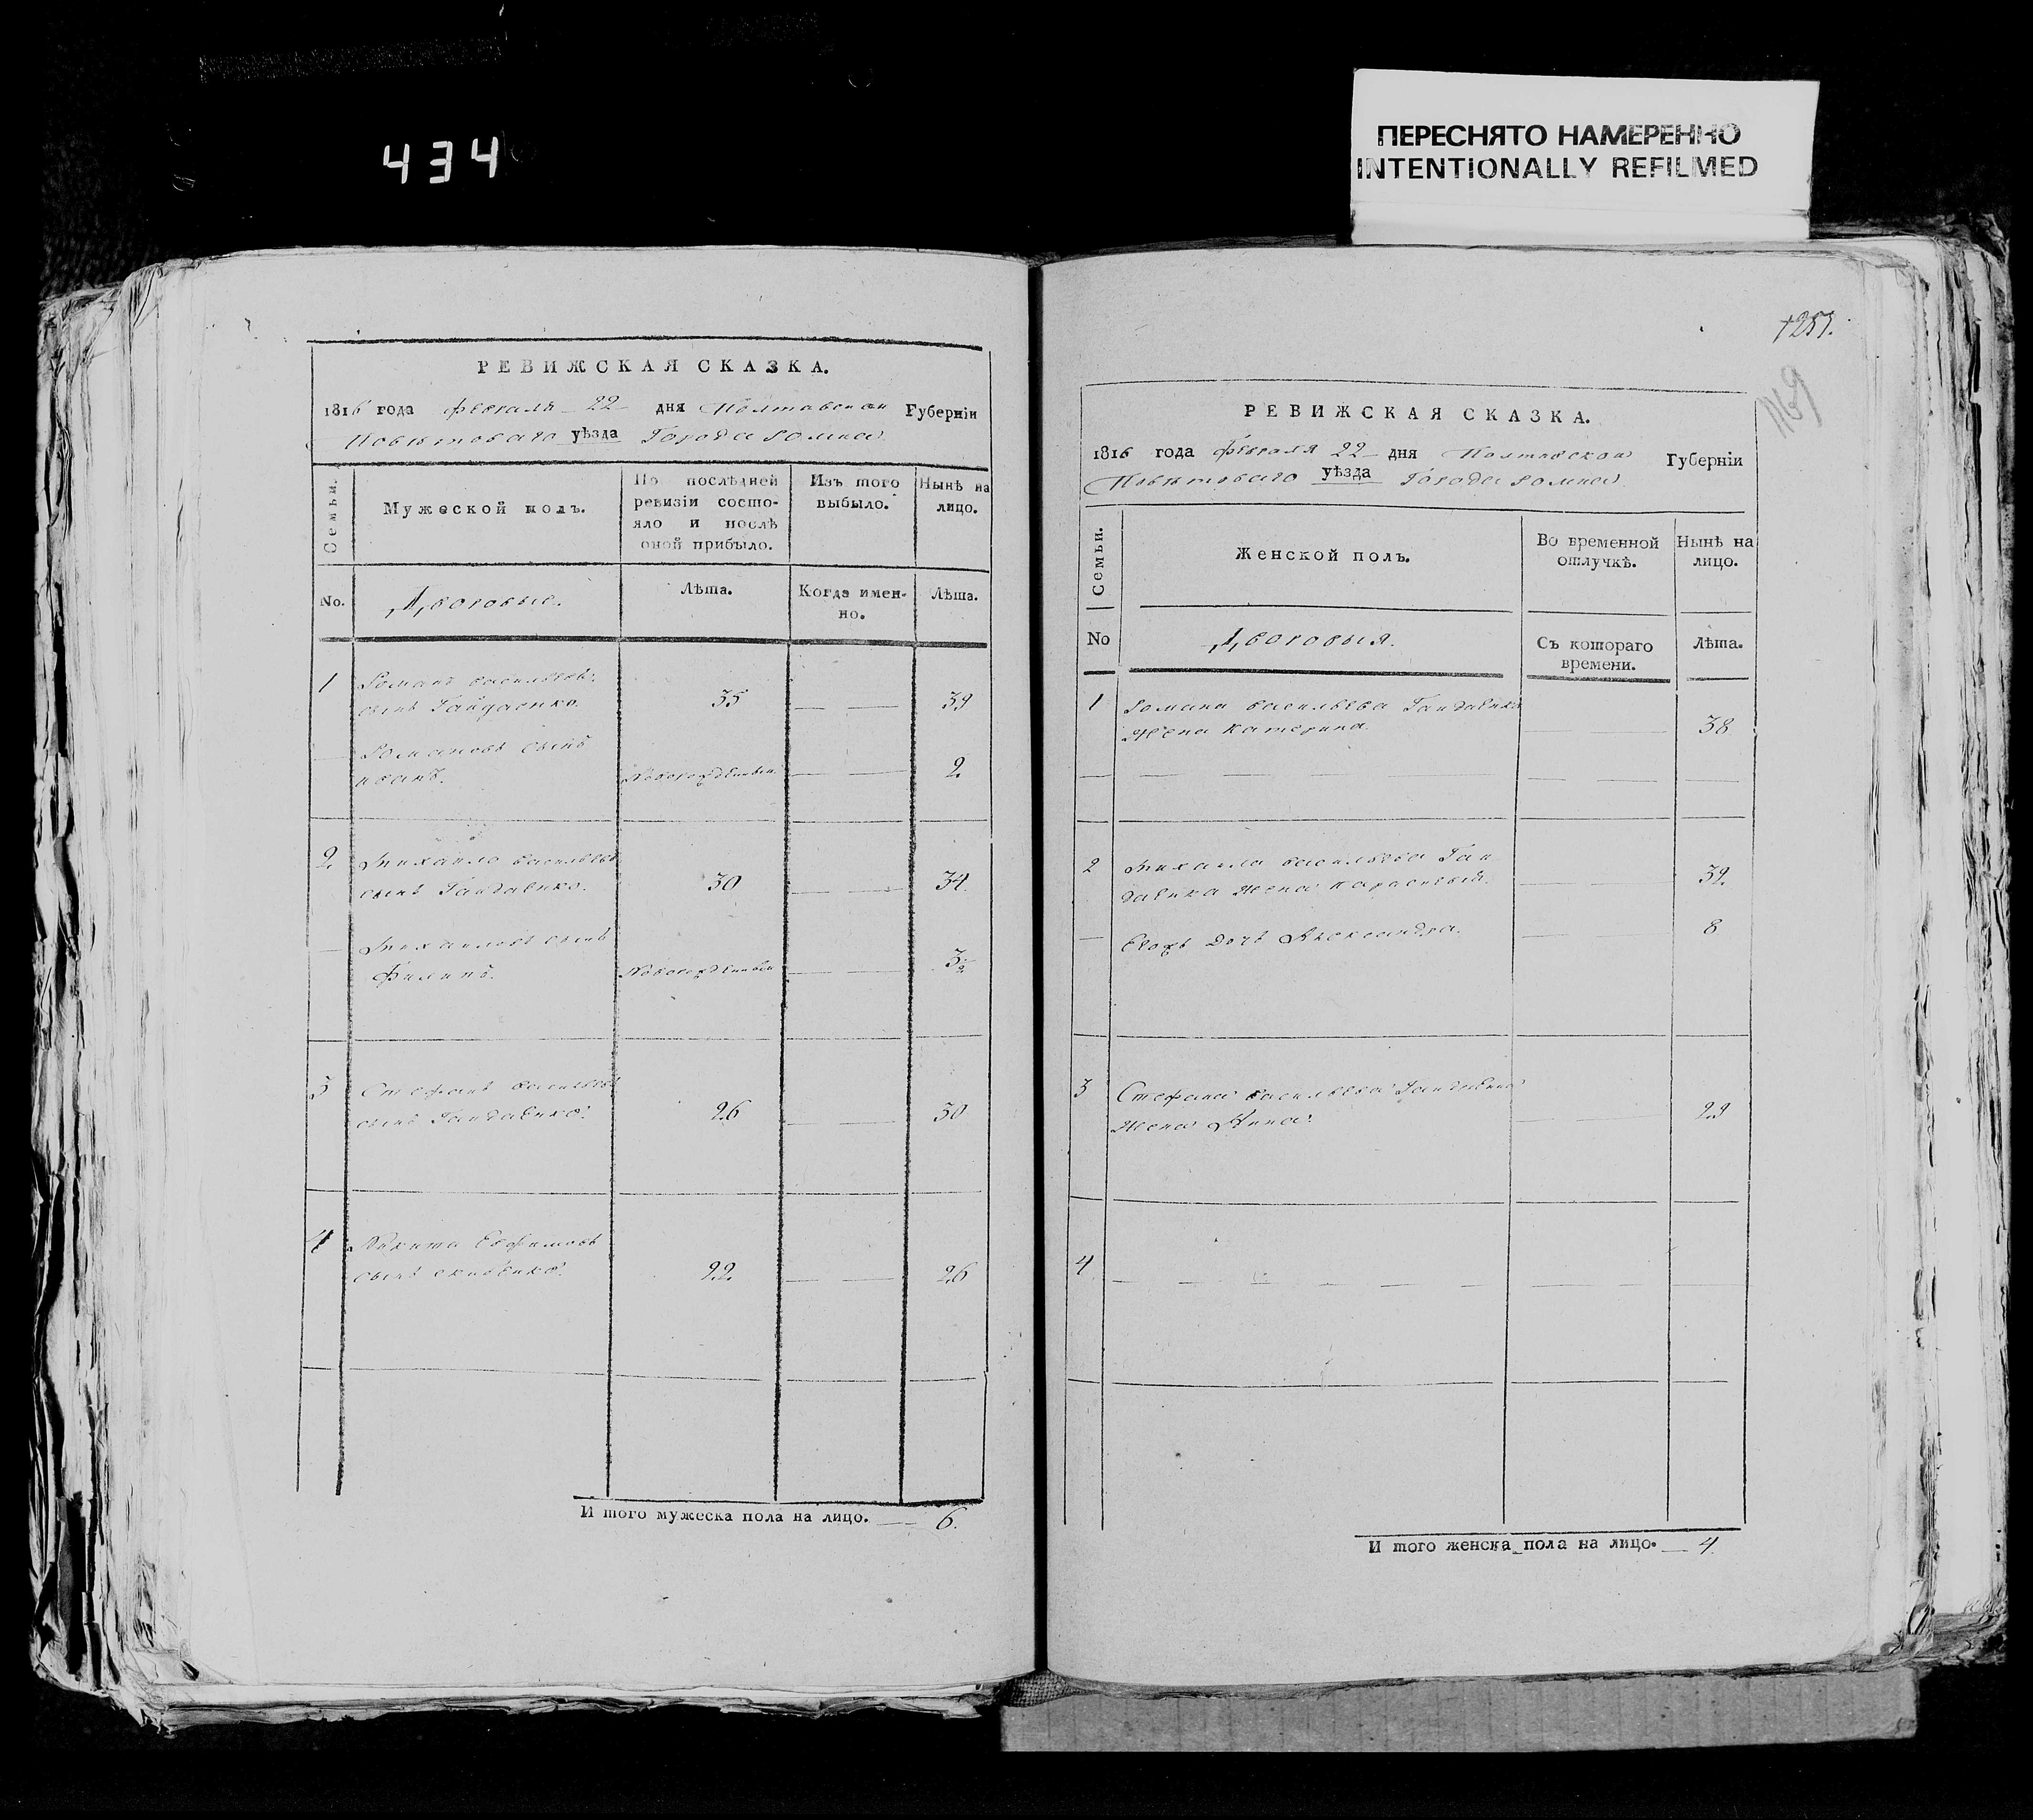 434
ПЕРЕСНЯТО НАМЕРЕННО
INTENTIONALLY REFILMED
РЕВИЖСКАЯ СКАЗКА.
1816 года февраля 22 дня Полтавской Губернїи
Повѣтоваго уѣзда Города Ромна
Семьи.
Мужеской полъ.
По послѣдней ревизїи состо-
яло и послѣ
оной прибыло.
Изъ того выбыло.
Нынѣ на лицо.
No.
Дворовые.
Лѣта.
Когда имен-
но.
Лѣта.
1 Романъ васильевъ
сынъ Гайдаенко. 35 39
Романовъ сынъ
иванъ. Новорожденный 2.
2. Михайло васильевъ
сынъ Гайдаенко. 30 34.
Михайловъ сынъ
Филипъ. Новорожденный
3 Стефанъ васильевъ
сынъ Гайдаенко. 26 30
4 Никита Евфимовъ
сынъ 22. 26
И того мужеска пола на лицо. 6.
1257.
1169
РЕВИЖСКАЯ СКАЗКА.
1816 года февраля 22 дня Полтавской Губернїи
Повѣтоваго уѣзда Города Ромна
Семьи.
Женской полъ.
Во временной
отлучкѣ.
Нынѣ на
лицо.
No
Дворовыя.
Съ котораго
времени.
Лѣта.
1 Романа васильева Гайдаенка
Жена катерина. 38
2 Михаила васильева Гай
даенка Жена 32.
Егожъ дочь Александра. 8
3 Стефана васильева Гайдаенка
Жена Анна. 29
4
И того женска пола на лицо. 4.